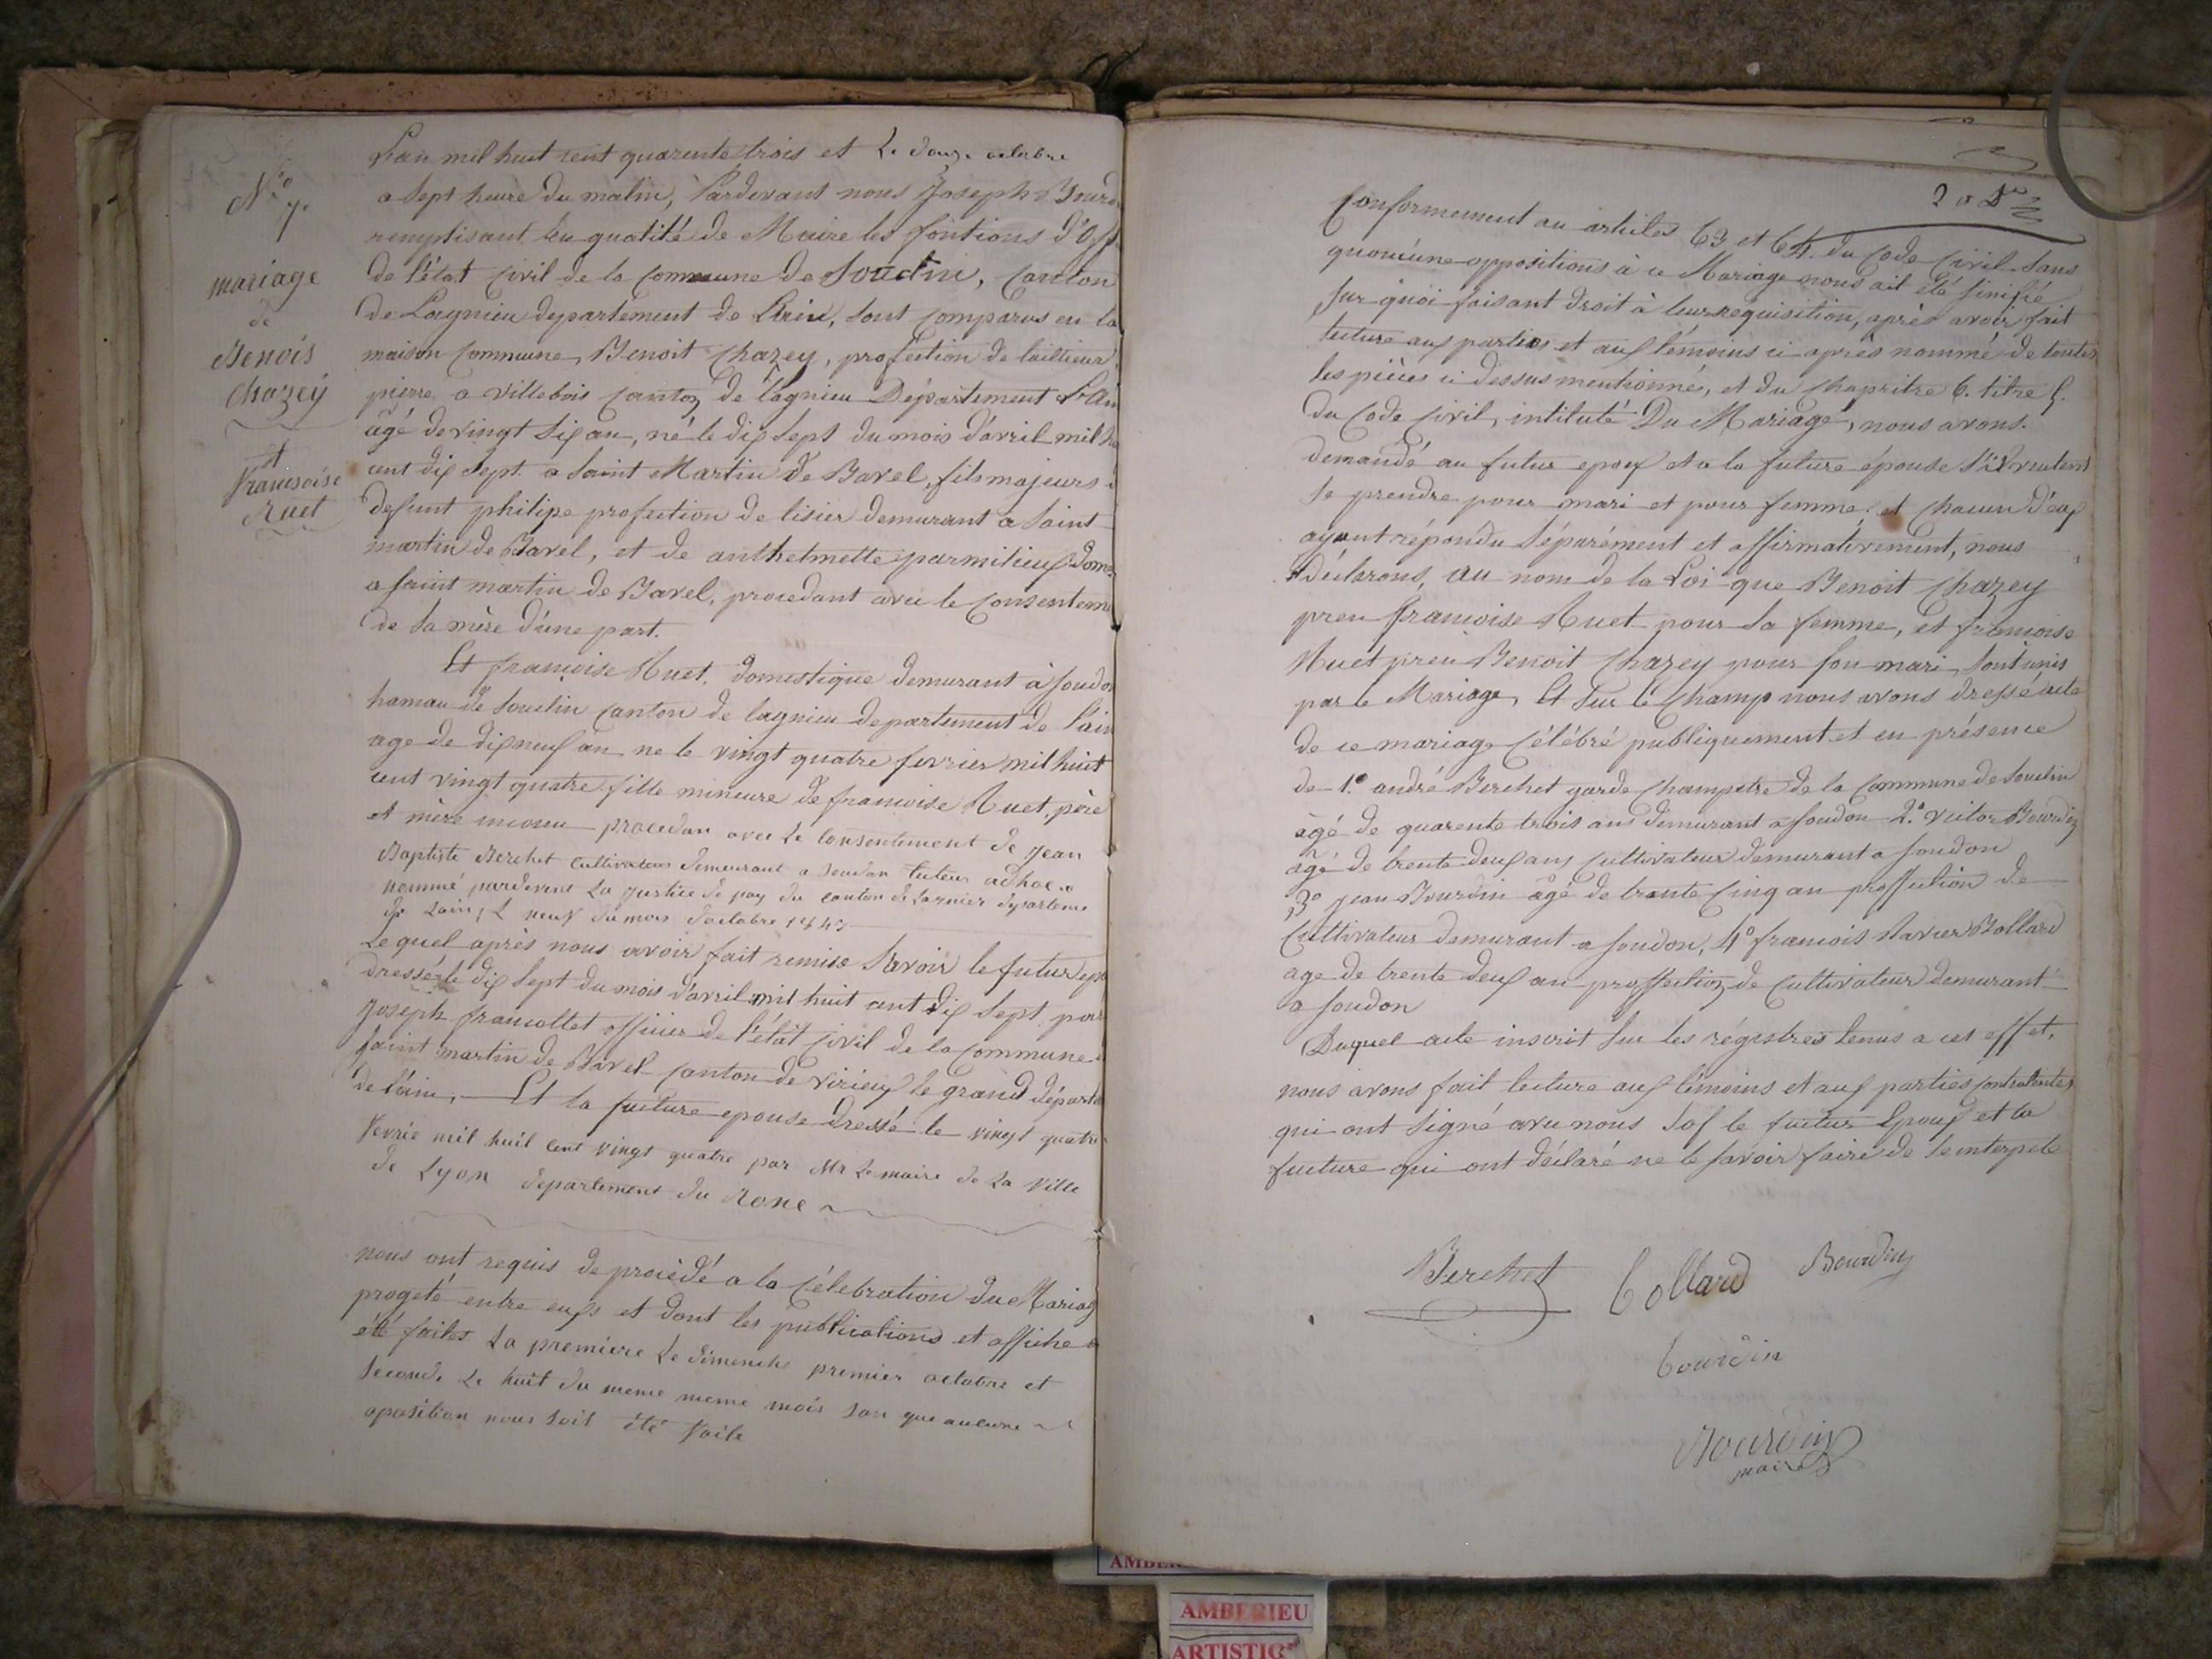 N.° 7.
mariage
de
Benois
Chazey
et
francoise
Ruet
L'an mil huit cent quarente trois et Le douze octobre
a sept heure du matin, Pardevant nous Joseph Bourd
remplisant en qualité de Maire les fontions d'Off
de l'état Civil de la Commune de Souclin, Canton
de Lagnieu departement de L'ain, sont comparus en la
maison Commune, Benoit Chazey, profection de taillieur
pierre a villebois Canton de lagnieu Département L'ain
âgé de vingt six an, né le dix sept du mois d'avril mil hu
cent dix sept a saint Martin de Bavel, fils majeurs
defunt philipe profection de tisier demurant a saint
martin de Bavel, et de anthelmette parmilieux dom
a saint martin de Bavel, procedant avec le Consenteme
de sa mère d'une part.
Et francoise Ruet, domestique demurant à soudon
hamau de souclin canton de lagnieu departement de l'ain
age de dix neuf an ne le vingt quatre fevrier mil huit
cent vingt quatre fille mineure de francoise Ruet, père
et mère inconu procedan avec Le Consentement de jean
Baptiste Berchet Cultivateur demeurant a soudon tuteur adhoc
nommé pardevent La justice de pay du canton de Lagnier departeme
de Lain, L neuf du mois d'octobre 1843
Lequel après nous avoir fait remise Savoir le futur epo
dressé le dix sept du mois d'avril mil huit cent dix sept par
joseph francollet officier de l'état Civil de la Commune
saint martin de Bavel canton de virieux le grand départe
de l'ain, Et la fuiture epouse dressé le vingt quatre
fevrie mil huit cent vingt quatre par Mr Le maire de La ville
de Lyon departement du Rone
nous ont requis de procédé a la Célebration du Mariag
progeté entre eux et dont les publications et affiche
été faites La premiere Le dimenche premier octobre et
seconde Le huit du meme meme mois san que aucune
oposition nous soit été faite
202
Conformement au articles 63 et 64. du Code Civil sans
qu'oucune oppositions à ce Mariage nous ait été sinifié
sur quoi faisant droit à leur requisition, après avoir fait
lecture aux parties et aux témoins ci après nommé de toutes
les pièces ci dessus mentionnés, et du Chapritre 6. titre 5.
du Code Civil, intitulé Du Mariage, nous avons.
demandé au futur epoux et a la future épouse s'il veulent
se prendre pour mari et pour femme, et Chacun d'eux
ayant répondu séparément et affirmativement, nous
déclarons, au nom de la Loi que Benoit Chazey
pren francoise Ruet pour sa femme, et francoise
Ruet pren Benoit Chazey pour son mari, sont unis
par le Mariage, Et sur le Champ nous avons dressé acte
de ce mariage Célébré publiquement et en présence
de 1.° andré Berchet garde Champetre de la Commune de souclin
âgé de quarente trois ans demurant a soudon 2.° victor Bourdin
agé de trente deux ans Cultivateur demurant a soudon
3° jean Bourdin âgé de trante Cinq an proffection de
Cultivateur demurant a soudon, 4° francois Xavier Bollard
age de trente deux an proffection de Cultivateur demurant
a soudon
Duquel acte inscrit sur les régistres tenus a cet effet,
nous avons fait lecture aux témoins et aux parties contratentes
qui ont signé avec nous sof le futur Epoux et la
fuiture qui ont déclaré ne le savoir faire de se interpele
Berchet Bollard Bourdin
bourdin
Bourdin
maire
AMBERIEU
ARTISTIQ